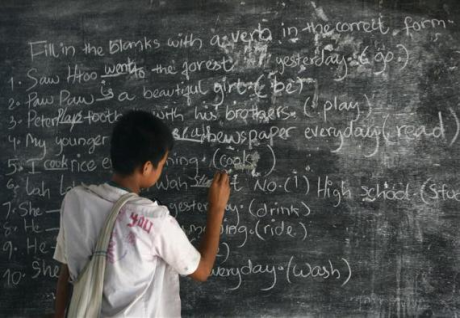 Fill in the blanks with a verb in the correct form.
1. Saw Htoo went to the forest yesterday. (go.)
2. Paw Paw is a beautiful girl. (be)
3. Peter play football with his brothers. (play)
4. My younger newspaper everyday (read)
5. I cook rice ning. (cook)
6. Lah No. (1) High school. (Stu
7. She yesterday. (drink)
8. He (ride)
9. He
10. She everyday. (wash)
YOU